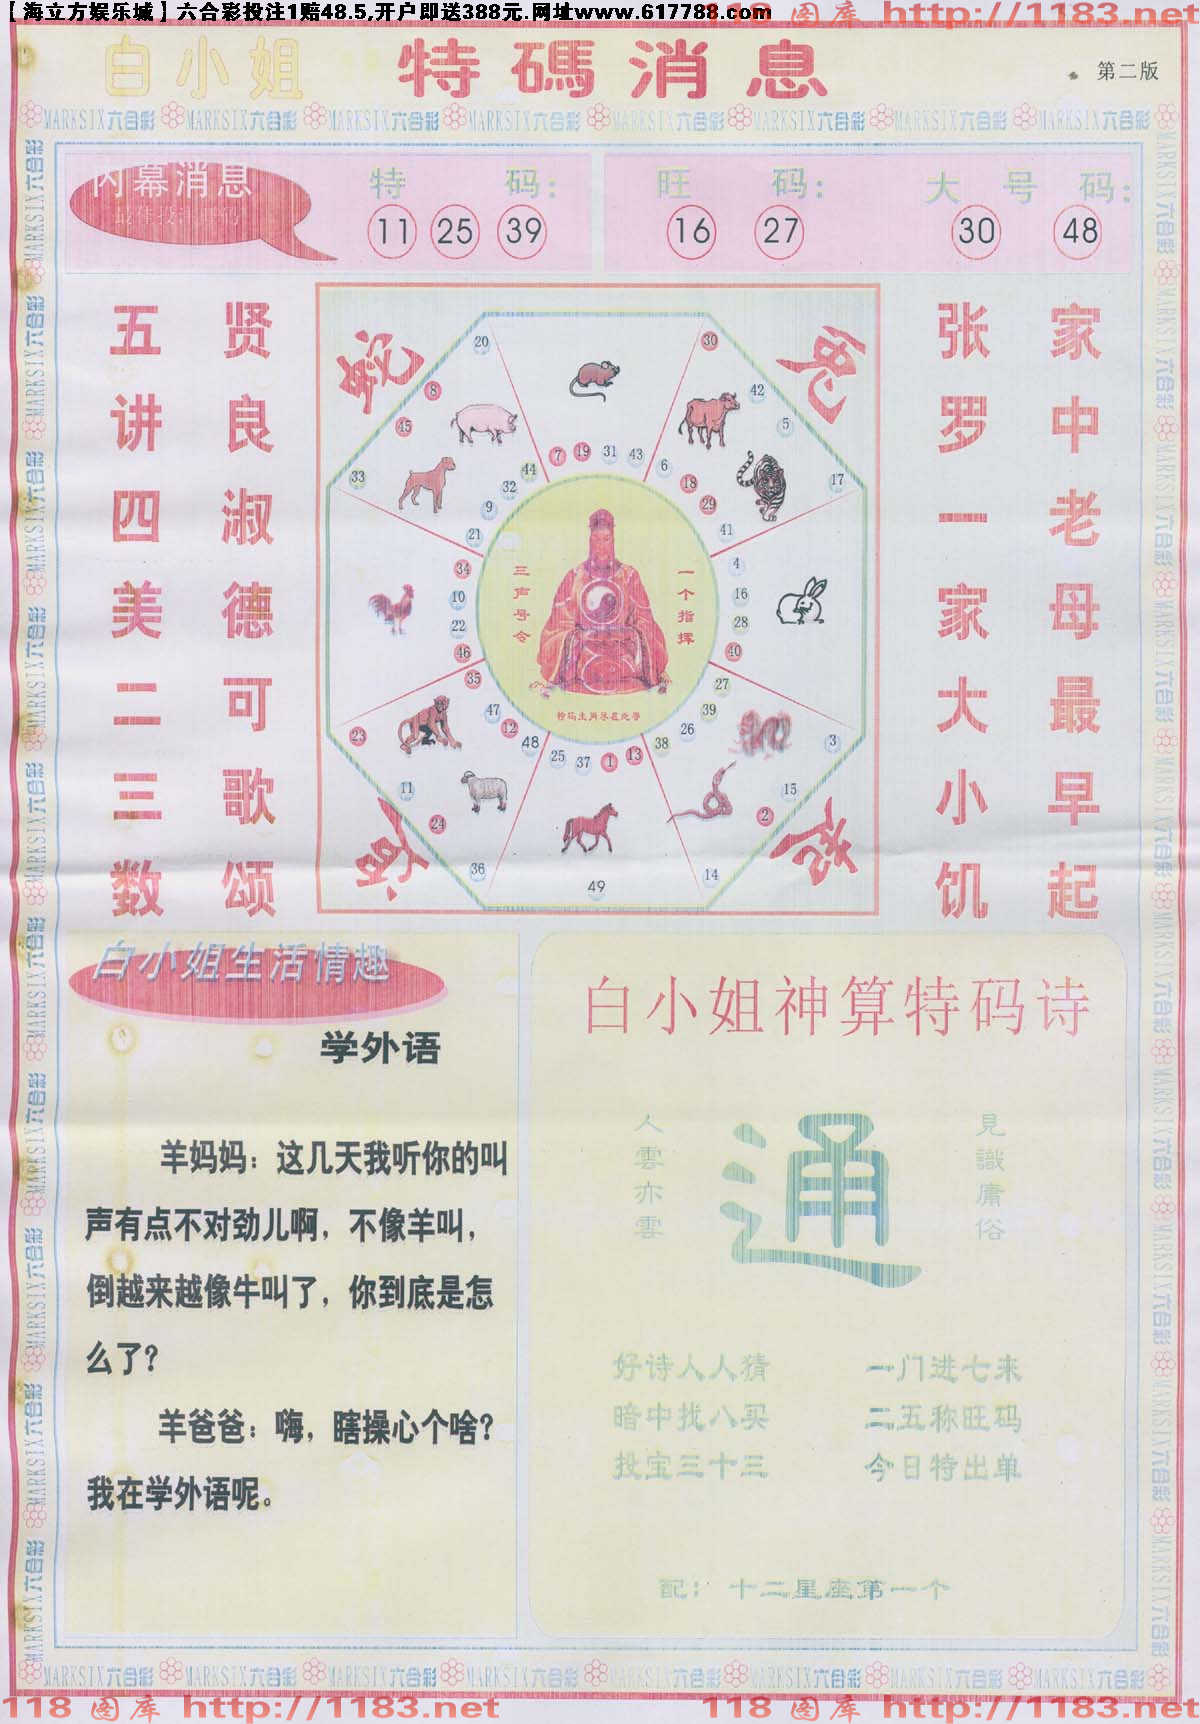 【海立方娱乐城】六合彩投注1赔48.5,开户即送388元.网址www.617788.com
118 图库 http://1183.net
白小姐 特碼消息
第二版
MARKSIX六合彩 MARKSIX六合彩 MARKSIX六合彩 MARKSIX六合彩 MARKSIX六合彩 MARKSIX六合彩 MARKSIX六合彩 MARKSIX六合彩
内幕消息
特 码:
11 25 39
旺 码:
16 27
大 号 码:
30 48
五讲四美二三数
贤良淑德可歌颂
张罗一家大小饥
家中老母最早起
蛇
兔
20
8
45
33
30
42
5
17
7 19 31 43
44
32
9
21
6
18
29
41
34
10
22
46
4
16
28
40
35
47
12
48
27
39
26
38
25 37 1 13
23
11
24
36
49
3
15
2
14
三声号令
一个指挥
虎
白小姐生活情趣
学外语
羊妈妈：这几天我听你的叫
声有点不对劲儿啊，不像羊叫，
倒越来越像牛叫了，你到底是怎
么了？
羊爸爸：嗨，瞎操心个啥？
我在学外语呢。
白小姐神算特码诗
人雲亦雲
通
見識庸俗
好诗人人猜 一门进七来
暗中找八买 二五称旺码
投宝三十三 今日特出单
配： 十二星座第一个
MARKSIX六合彩 MARKSIX六合彩 MARKSIX六合彩 MARKSIX六合彩 MARKSIX六合彩 MARKSIX六合彩 MARKSIX六合彩 MARKSIX六合彩
118 图库 http://1183.net
118 图库 http://1183.net